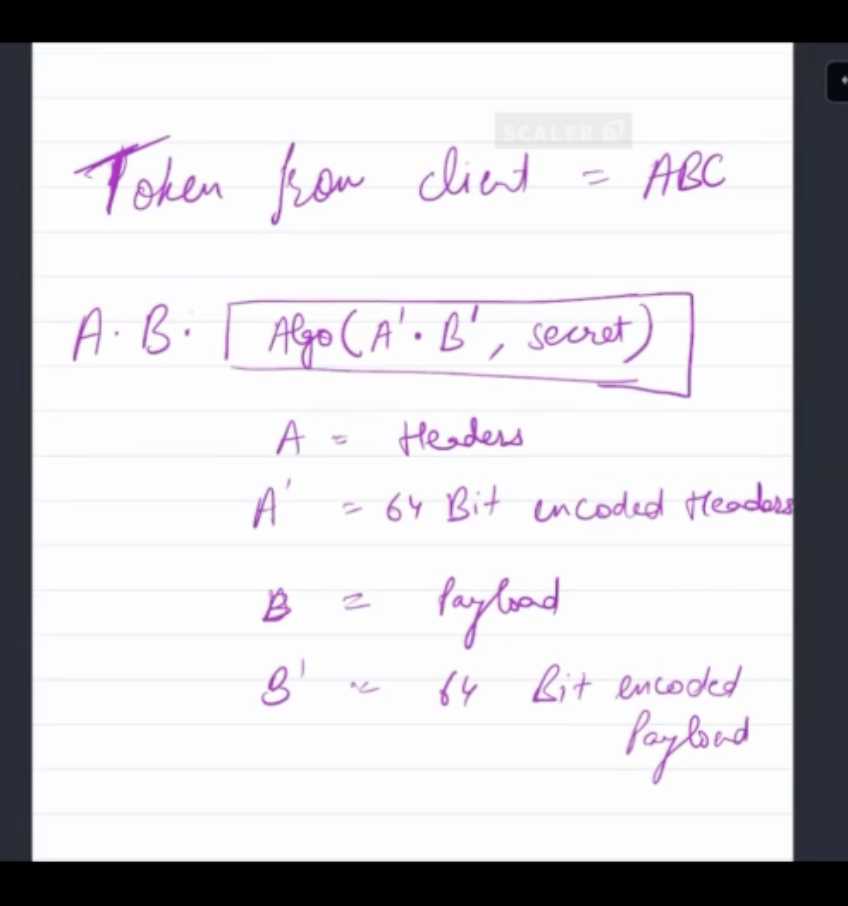 SCALER
Token from client = ABC
A. B. Algo (A'. B', secret)
A = Headers
A' = 64 Bit encoded Headers
B = Payload
B' = 64 Bit encoded
Payload